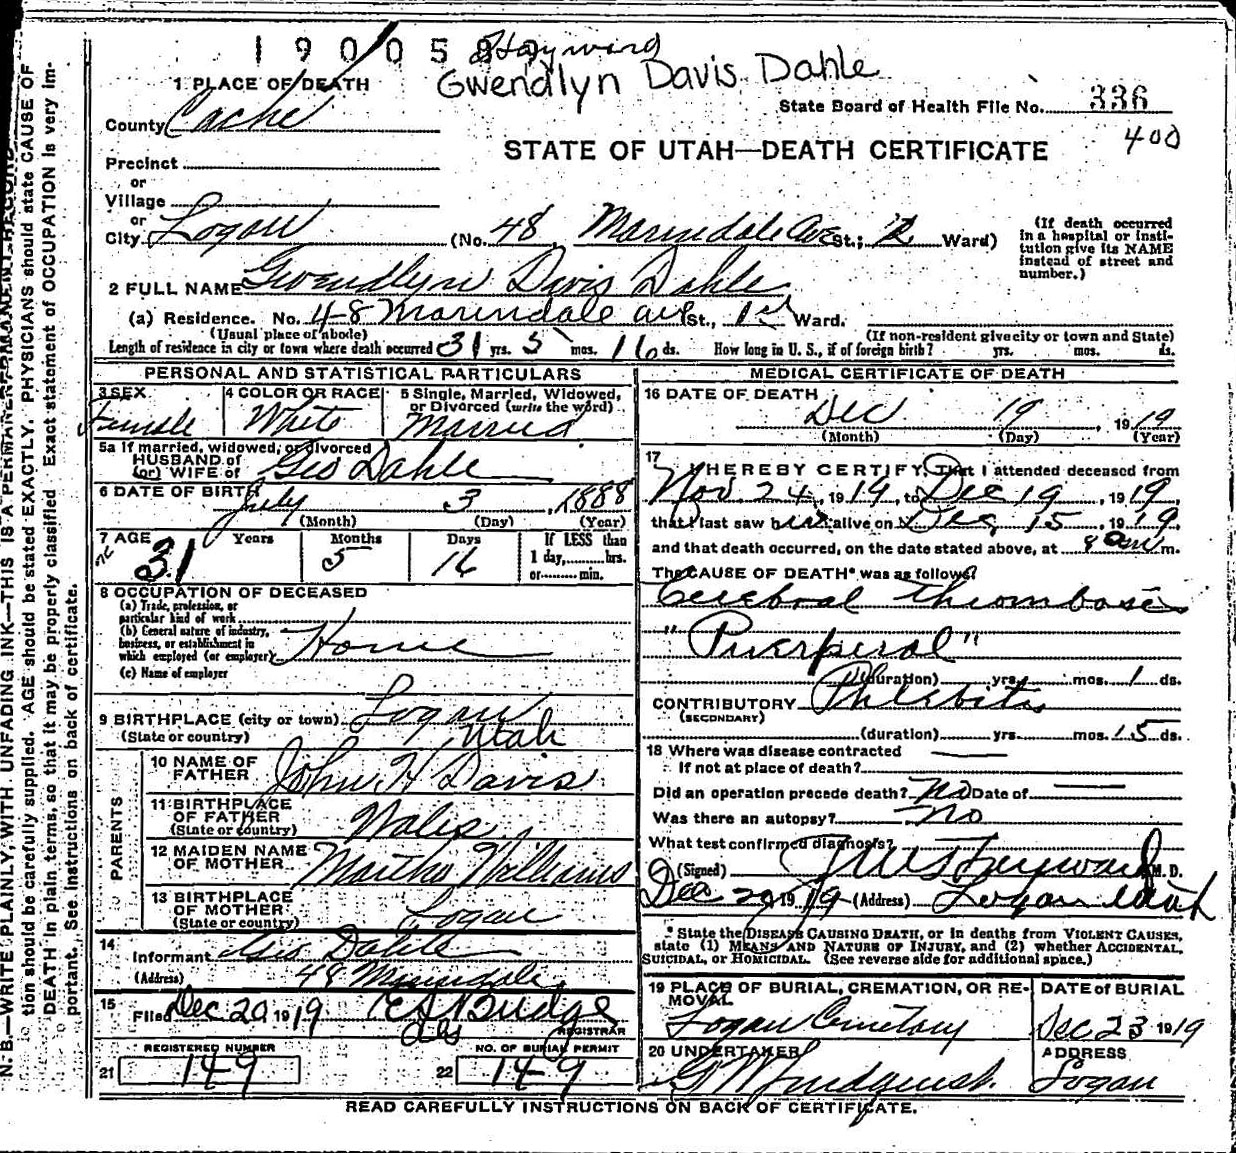 1900589 Hayward
Gwendlyn Davis Dahle
1 PLACE OF DEATH
State Board of Health File No. 336
County Cache
400
STATE OF UTAH—DEATH CERTIFICATE
Precinct
or
Village
or
City Logan (No. 48 Marindale Ave St.; Ward)
(If death occurred in a hospital or institution give its NAME instead of street and number.)
2 FULL NAME Gwendlyn Davis Dahle
(a) Residence. No. 48 Marindale ave St., 1st Ward.
(Usual place of abode) (If non-resident give city or town and State)
Length of residence in city or town where death occurred 31 yrs. 5 mos. 16 ds. How long in U. S., if of foreign birth? yrs. mos. ds.
PERSONAL AND STATISTICAL PARTICULARS
3 SEX Female
4 COLOR OR RACE White
5 Single, Married, Widowed, or Divorced (write the word) Married
5a If married, widowed, or divorced
HUSBAND of
(or) WIFE of Geo Dahle
6 DATE OF BIRTH July 3, 1888
(Month) (Day) (Year)
7 AGE 31 Years 5 Months 16 Days
If LESS than 1 day, hrs. or min.
8 OCCUPATION OF DECEASED
(a) Trade, profession, or particular kind of work
(b) General nature of industry, business, or establishment in which employed (or employer) Home
(c) Name of employer
9 BIRTHPLACE (city or town) Logan
(State or country) Utah
PARENTS
10 NAME OF FATHER John H Davis
11 BIRTHPLACE OF FATHER (State or country) Wales
12 MAIDEN NAME OF MOTHER Martha Williams
13 BIRTHPLACE OF MOTHER (State or country) Logan
14 Informant Geo Dahle
(Address) 48 Marindale
15 Filed Dec 20 1919 E S Budge
REGISTRAR
REGISTERED NUMBER
21 149
NO. OF BURIAL PERMIT
22 149
MEDICAL CERTIFICATE OF DEATH
16 DATE OF DEATH Dec 19, 1919
(Month) (Day) (Year)
17 I HEREBY CERTIFY, That I attended deceased from
Nov. 24, 1919, to Dec 19, 1919,
that I last saw her alive on Dec, 15, 1919,
and that death occurred, on the date stated above, at 8 am m.
The CAUSE OF DEATH* was as follows:
Cerebral thrombosis
"Puerperal"
(duration) yrs. mos. 1 ds.
CONTRIBUTORY Phlebitis
(SECONDARY)
(duration) yrs. mos. 15 ds.
18 Where was disease contracted
If not at place of death?
Did an operation precede death? No Date of
Was there an autopsy? No
What test confirmed diagnosis?
(Signed) Hayward M. D.
Dec 20 1919 (Address) Logan Utah
* State the DISEASE CAUSING DEATH, or in deaths from VIOLENT CAUSES,
state (1) MEANS AND NATURE OF INJURY, and (2) whether ACCIDENTAL,
SUICIDAL, or HOMICIDAL. (See reverse side for additional space.)
19 PLACE OF BURIAL, CREMATION, OR REMOVAL
Logan Cemetary
DATE of BURIAL
Dec 23 1919
20 UNDERTAKER
Lindquist
ADDRESS
Logan
READ CAREFULLY INSTRUCTIONS ON BACK OF CERTIFICATE.
N. B.—WRITE PLAINLY, WITH UNFADING INK—THIS IS A PERMANENT RECORD
tion should be carefully supplied. AGE should be stated EXACTLY. PHYSICIANS should state CAUSE OF
DEATH in plain terms, so that it may be properly classified. Exact statement of OCCUPATION is very im-
portant. See instructions on back of certificate.